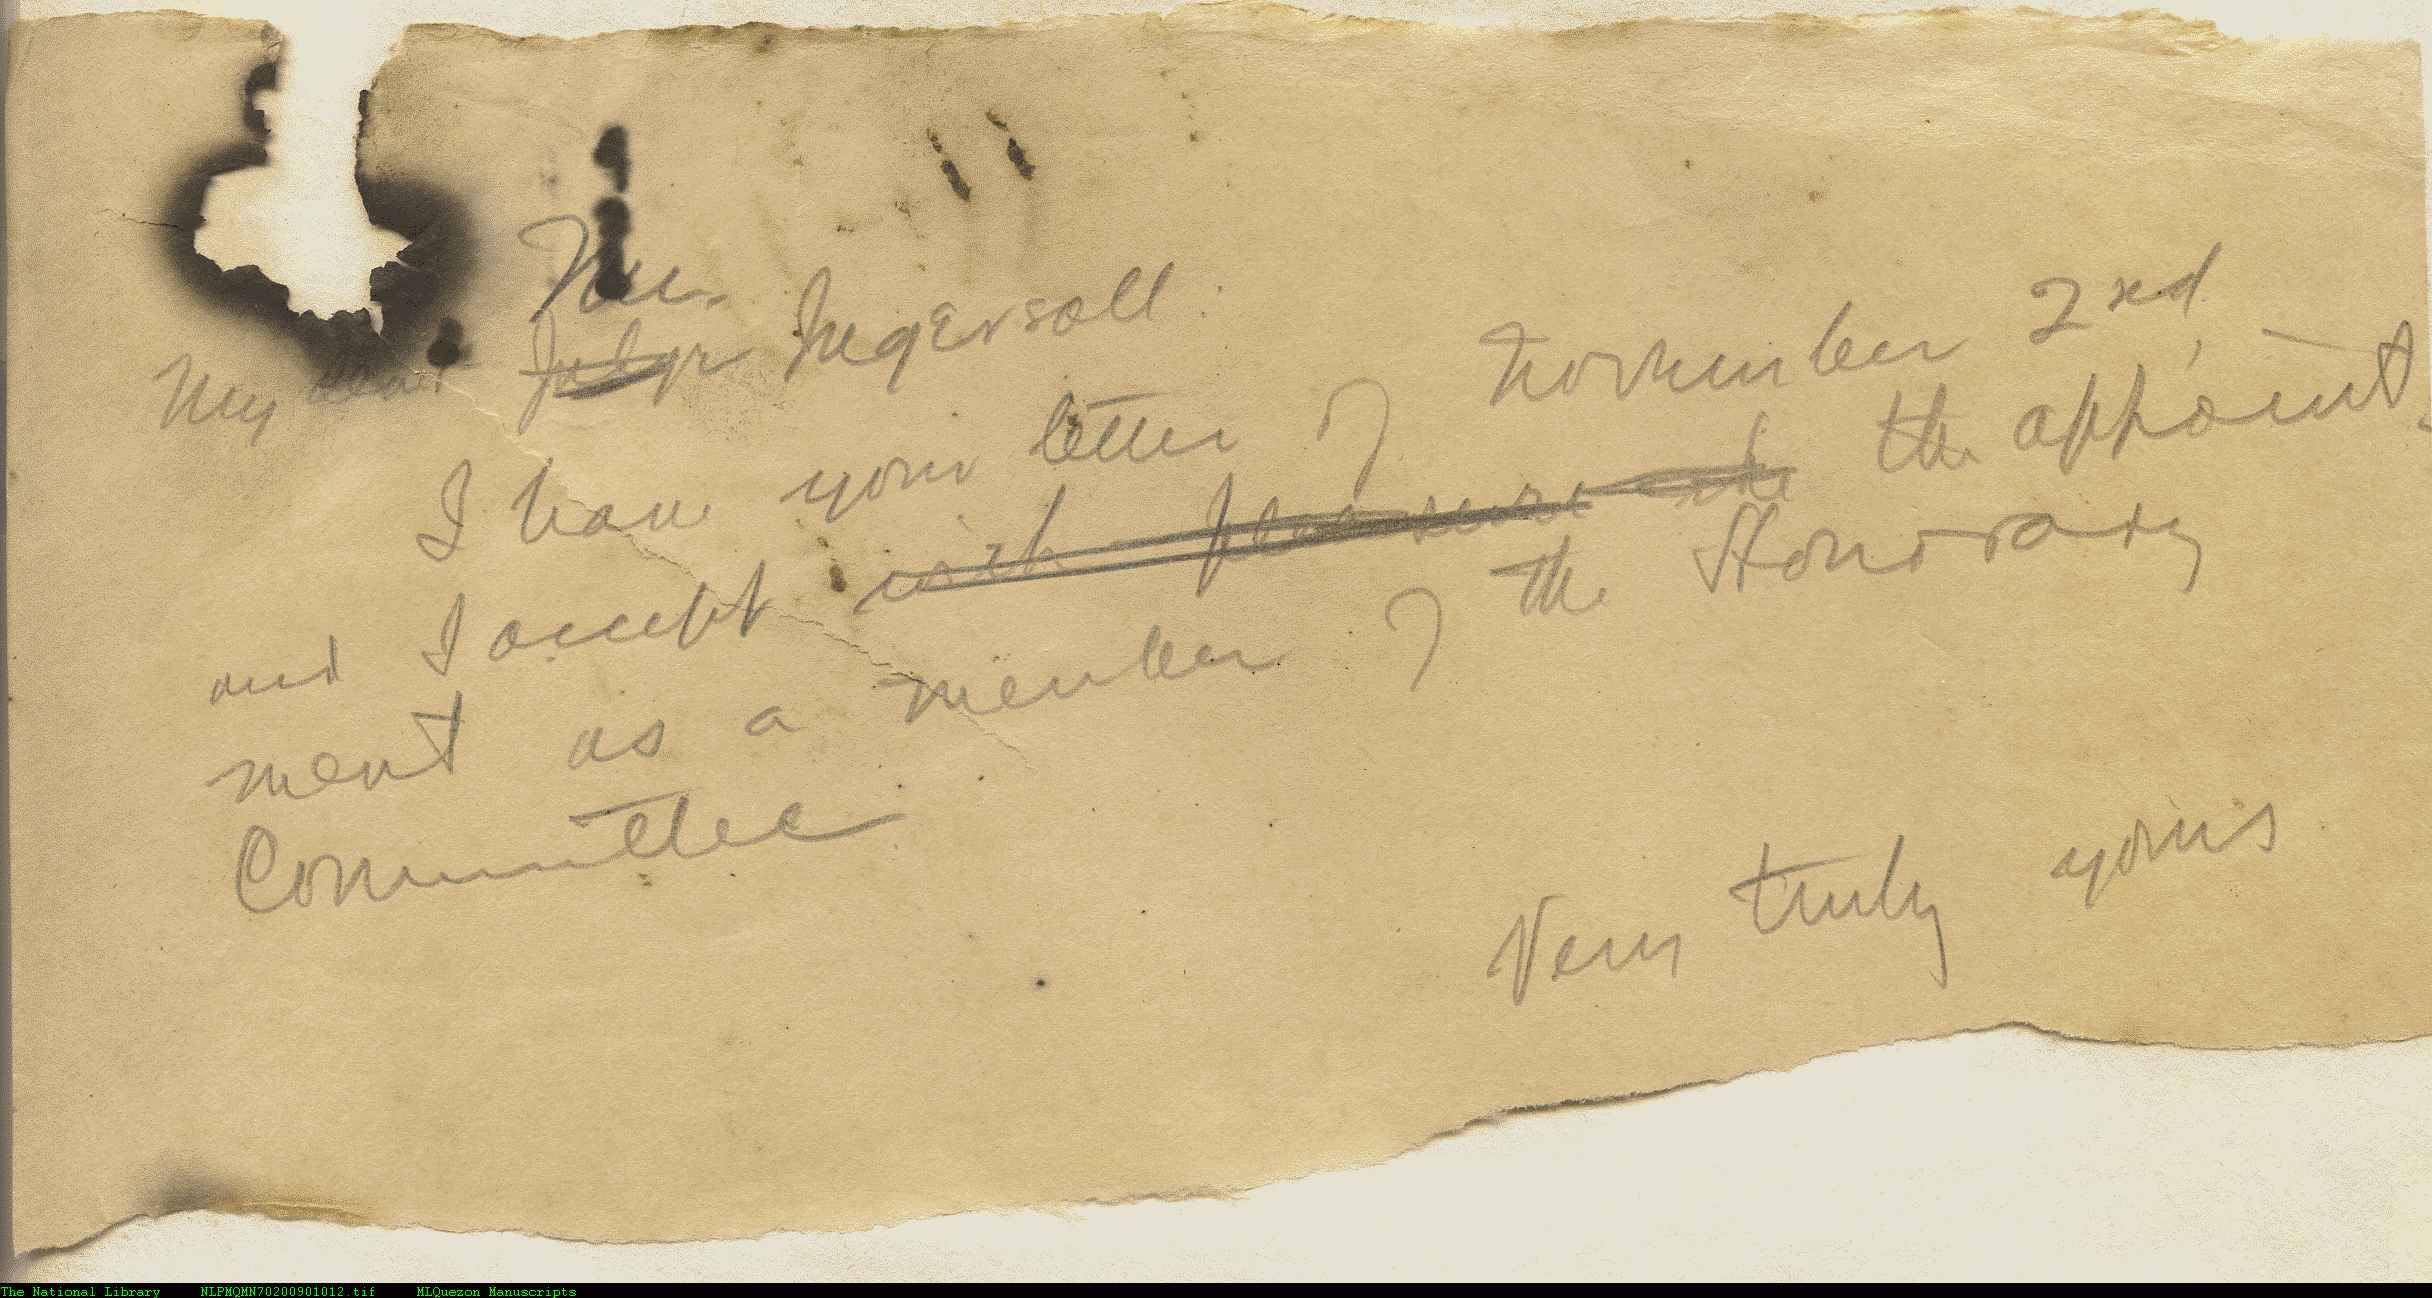 Mr.
My dear Judge Ingersoll:
I have your letter of November 2nd,
and I accept with pleasure the appoint-
ment as a member of the Honorary
Committee
Very truly yours
The National Library NLPMQMN70200901012.tif MLQuezon Manuscripts